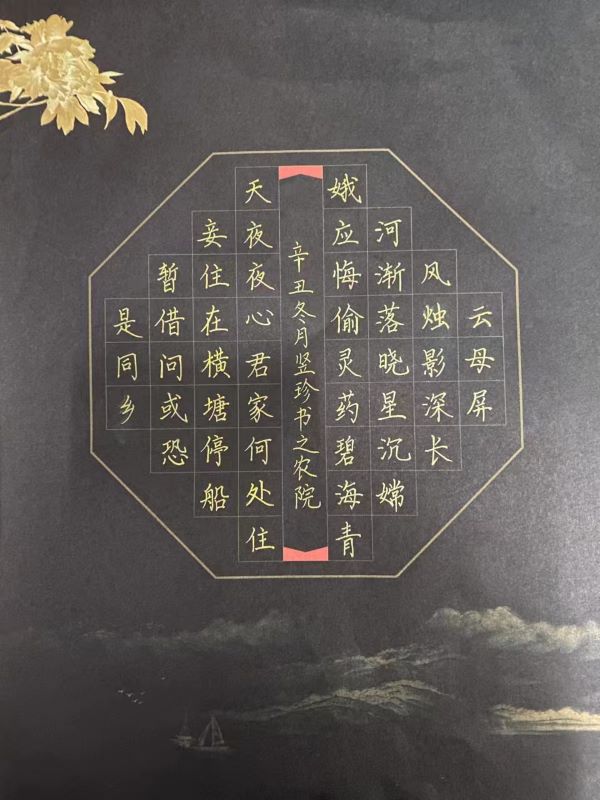 云母屏
风烛影深长
河渐落晓星沉嫦
娥应悔偷灵药碧海青
辛丑冬月竖珍书之农院
天夜夜心君家何处住
妾住在横塘停船
暂借问或恐
是同乡